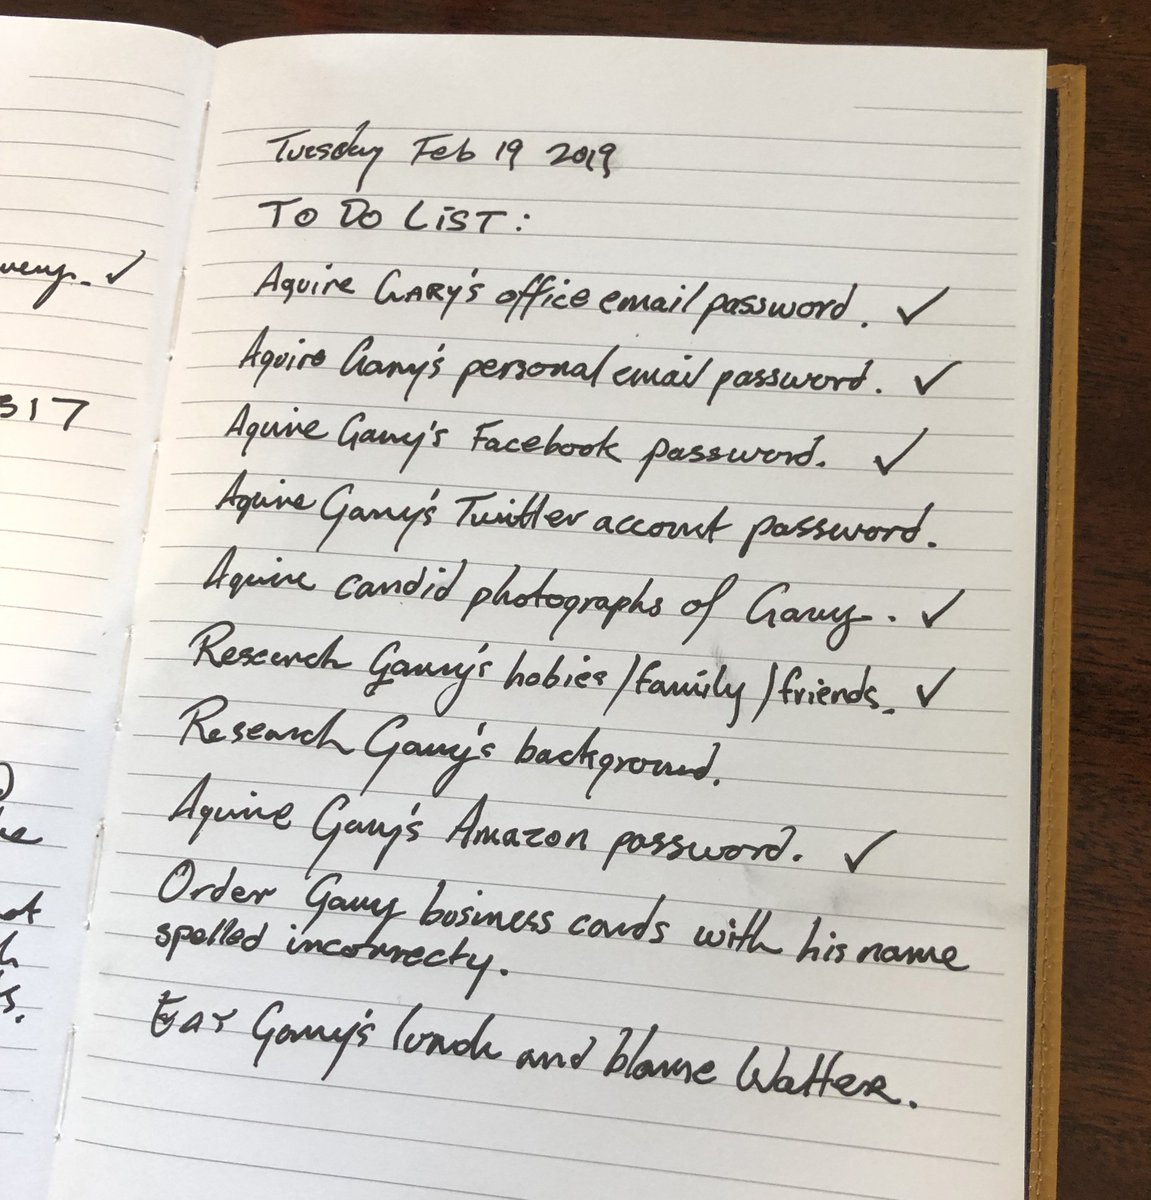 Tuesday Feb 19 2019
TO DO LIST:
Aquire GARY's office email password. ✓
Aquire Gary's personal email password. ✓
Aquire Gary's Facebook password. ✓
Aquire Gary's Twitter account password.
Aquire candid photographs of Gary. ✓
Research Gary's hobies/family/friends. ✓
Research Gary's background.
Aquire Gary's Amazon password. ✓
Order Gary business cards with his name
spelled incorrecty.
Eat Gary's lunch and blame Walter.
317